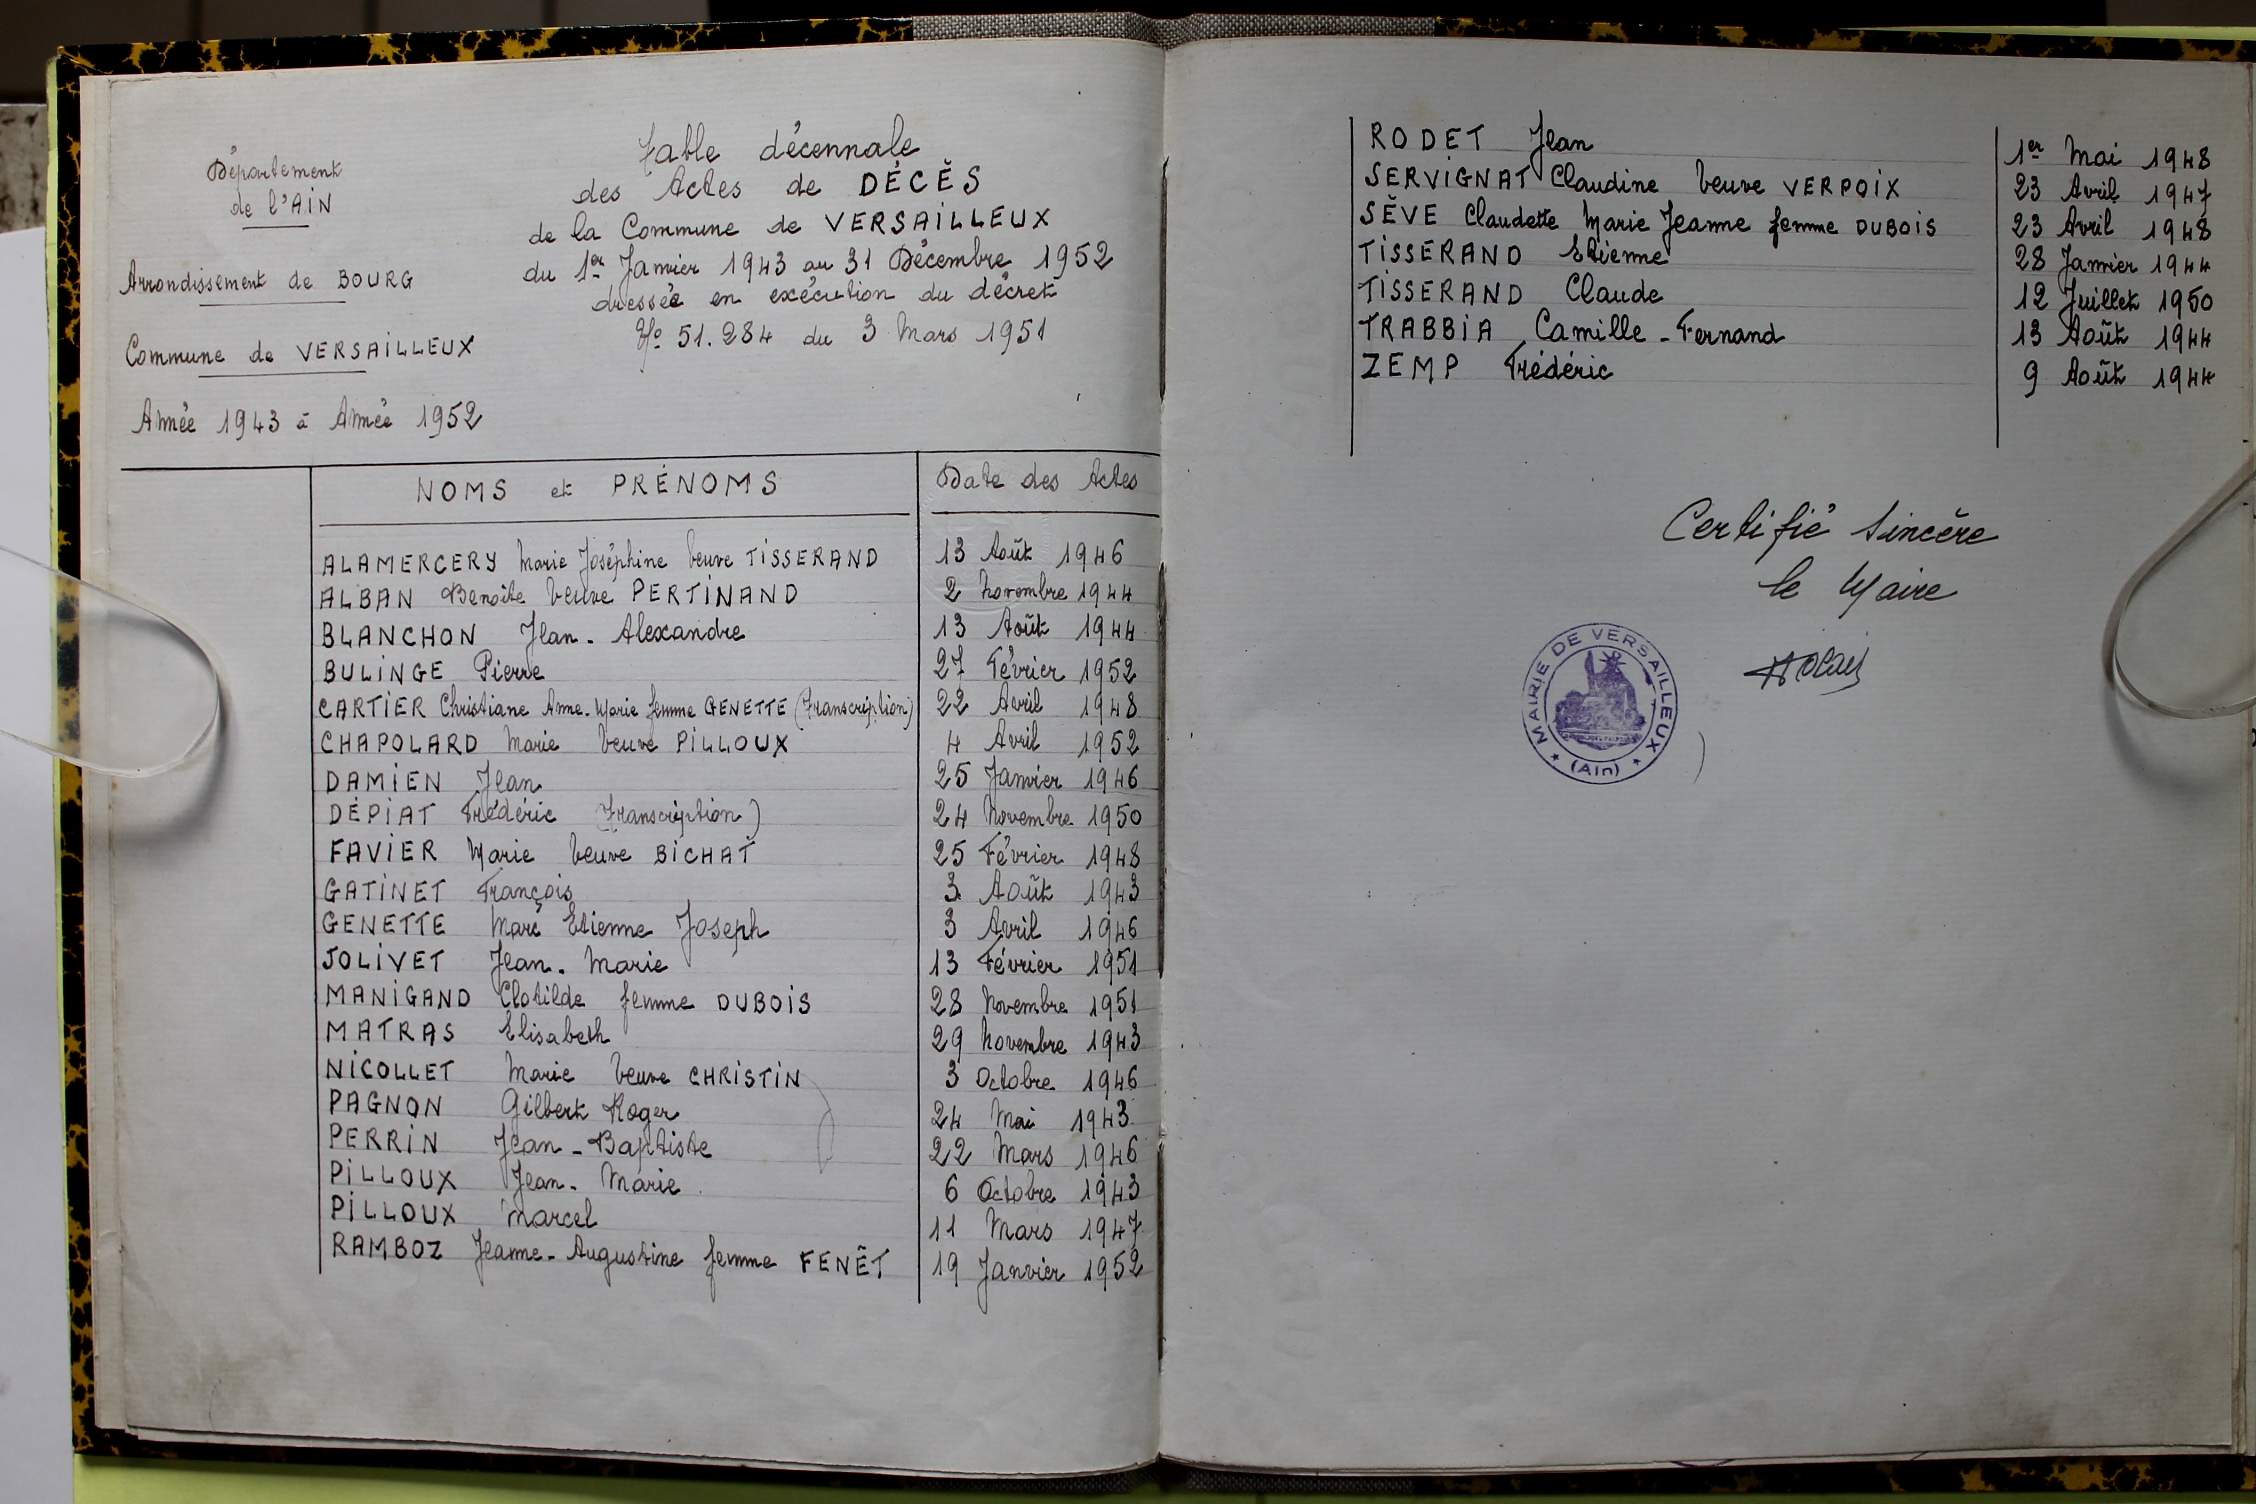 Département
de l'AIN
Arrondissement de BOURG
Commune de VERSAILLEUX
Année 1943 à Année 1952
Table décennale
des Actes de DÉCÈS
de la Commune de VERSAILLEUX
du 1er Janvier 1943 au 31 Décembre 1952
dressée en exécution du décret
No 51.284 du 3 Mars 1951
NOMS et PRÉNOMS Date des Actes
ALAMERCERY Marie Joséphine Veuve TISSERAND 13 Août 1946
ALBAN Benoîte Veuve PERTINAND 2 Novembre 1944
BLANCHON Jean-Alexandre 13 Août 1944
BULINGE Pierre 27 Février 1952
CARTIER Christiane Anne-Marie femme GENETTE (Transcription) 22 Avril 1948
CHAPOLARD Marie Veuve PILLOUX 4 Avril 1952
DAMIEN Jean 25 Janvier 1946
DÉPIAT Frédéric (Transcription) 24 Novembre 1950
FAVIER Marie Veuve BICHAT 25 Février 1948
GATINET François 3 Août 1943
GENETTE Marc Etienne Joseph 3 Avril 1946
JOLIVET Jean-Marie 13 Février 1951
MANIGAND Clotilde femme DUBOIS 28 Novembre 1951
MATRAS Elisabeth 29 Novembre 1943
NICOLLET Marie Veuve CHRISTIN 3 Octobre 1946
PAGNON Gilbert Roger 24 Mai 1943
PERRIN Jean-Baptiste 22 Mars 1946
PILLOUX Jean-Marie 6 Octobre 1943
PILLOUX Marcel 11 Mars 1947
RAMBOZ Jeanne-Augustine femme FENÊT 19 Janvier 1952
RODET Jean 1er Mai 1948
SERVIGNAT Claudine Veuve VERPOIX 23 Avril 1947
SÈVE Claudette Marie Jeanne femme DUBOIS 23 Avril 1948
TISSERAND Etienne 28 Janvier 1944
TISSERAND Claude 12 Juillet 1950
TRABBIA Camille-Fernand 13 Août 1944
ZEMP Frédéric 9 Août 1944
Certifié Sincère
le Maire
MAIRIE DE VERSAILLEUX
(Ain)